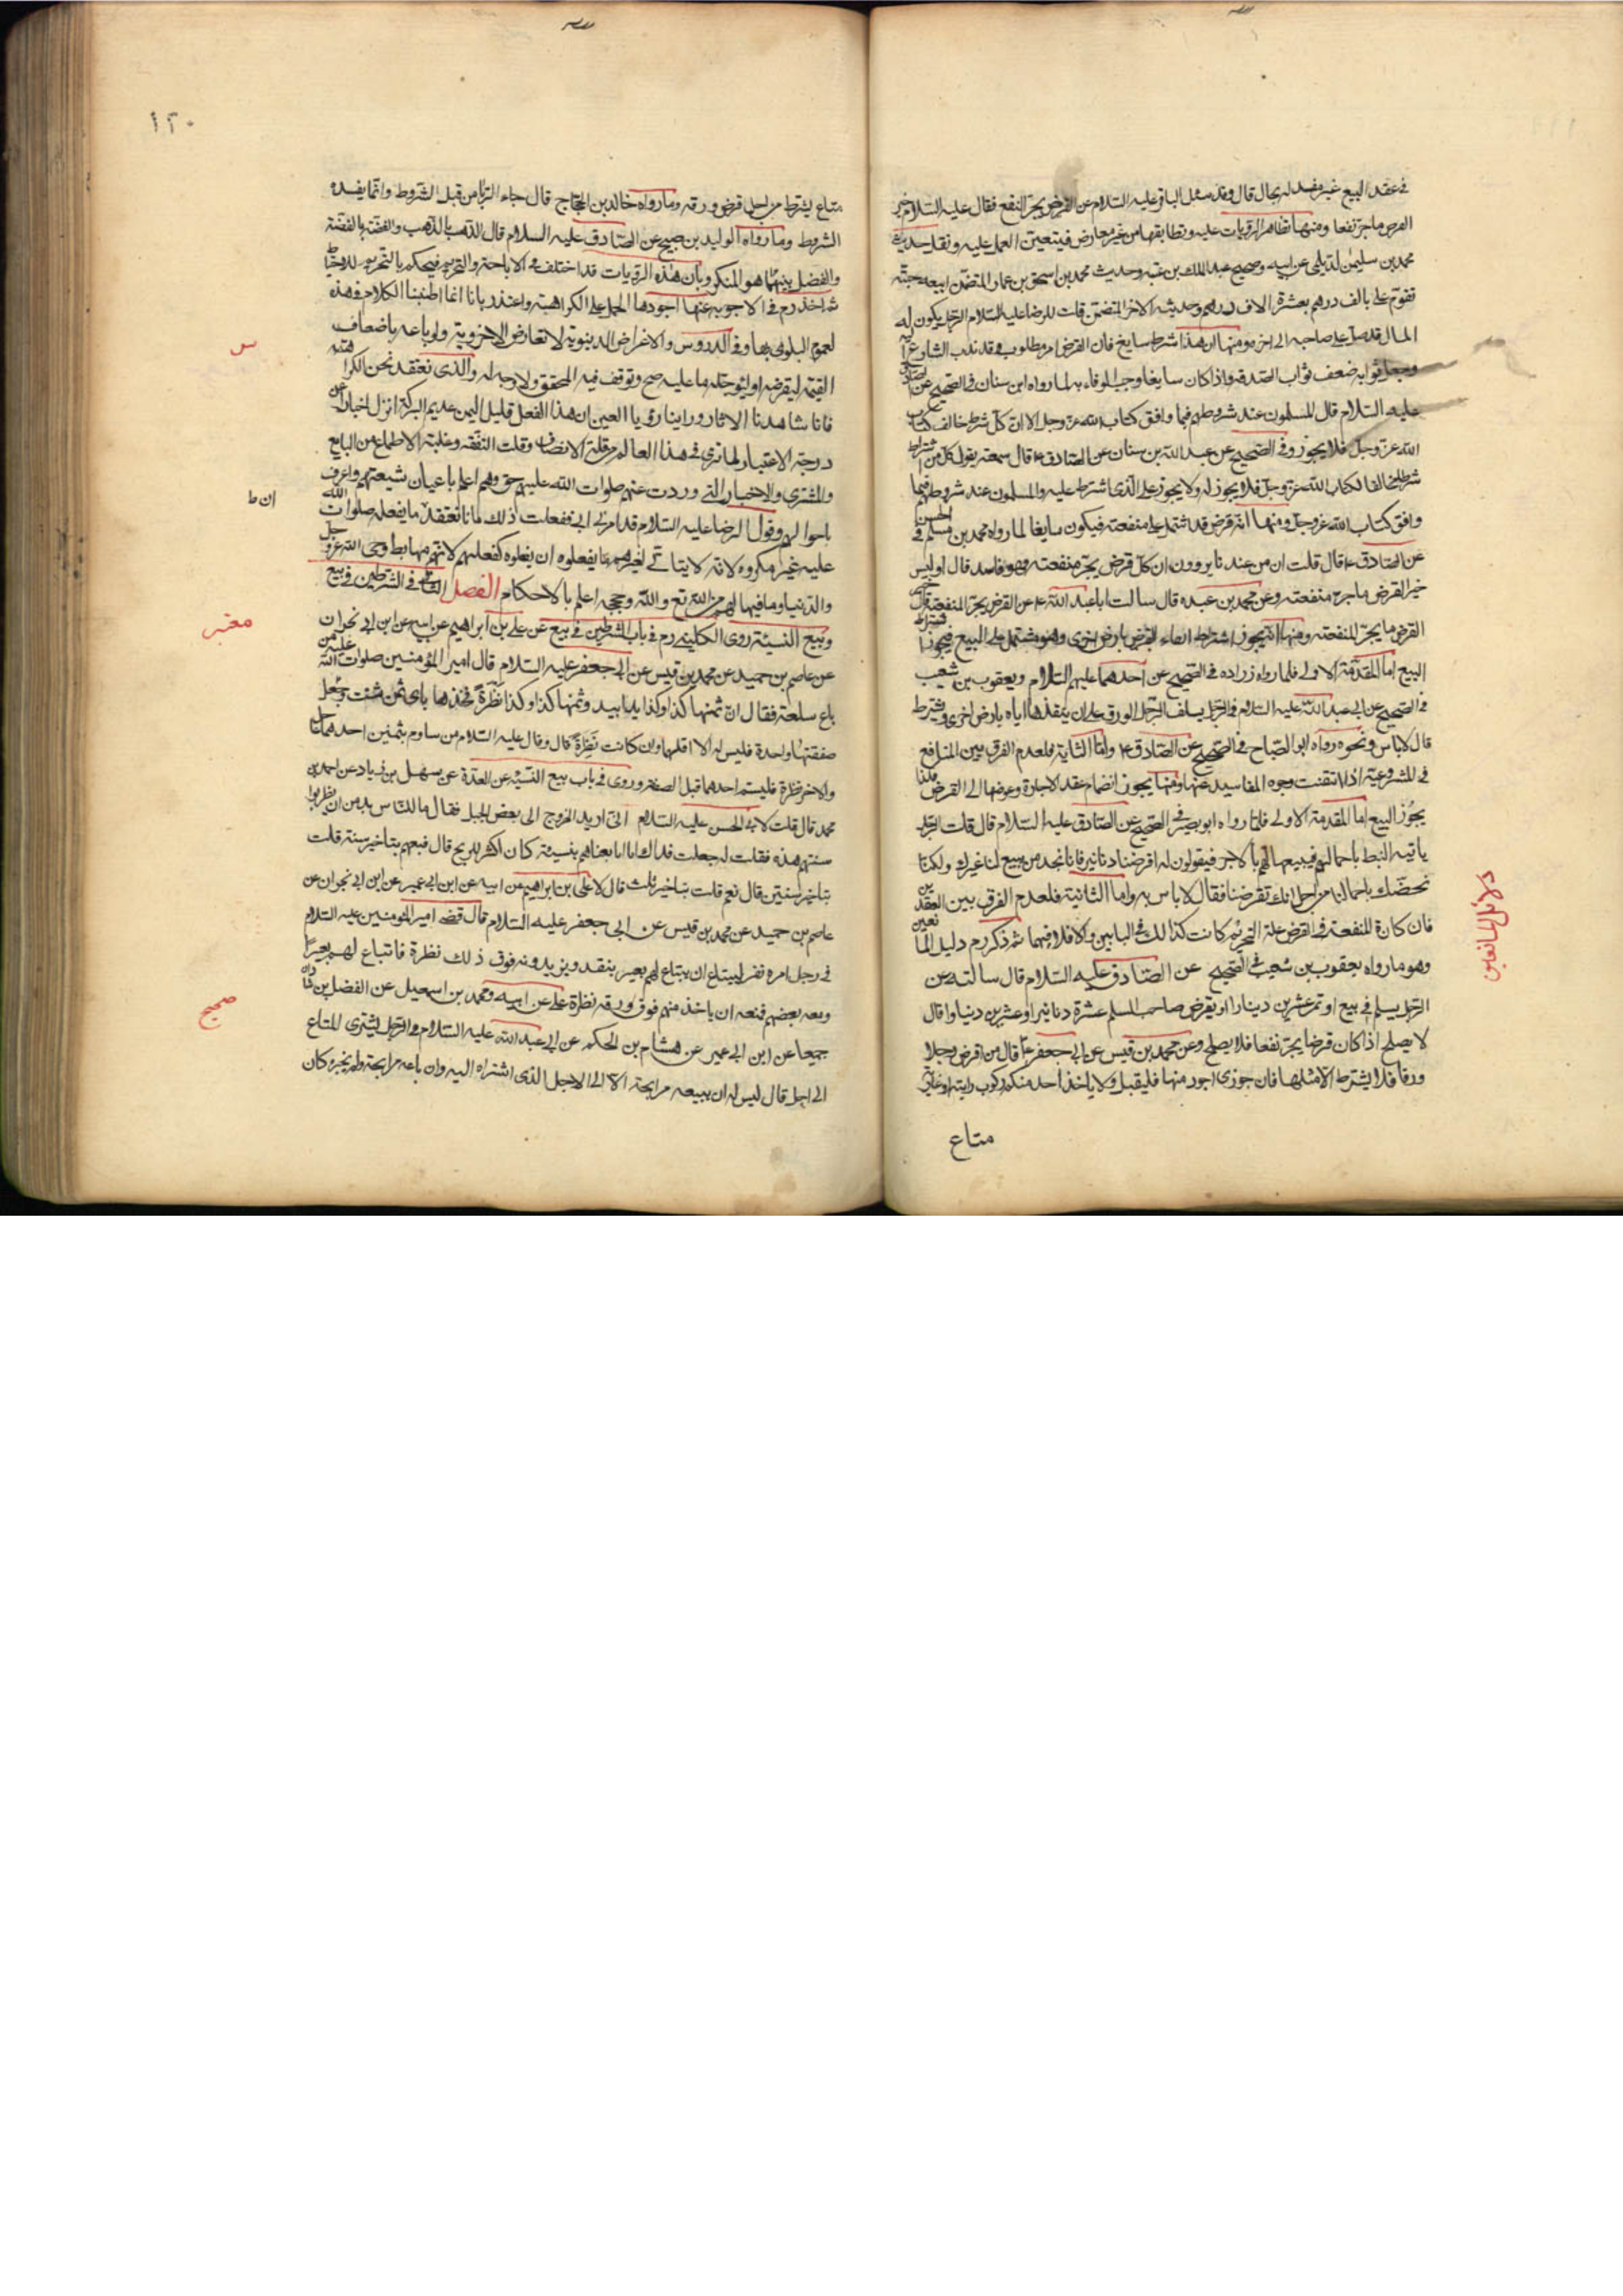 في عقد البيع غير مفسد له بحال قال وقد سئل الباقر عليه السلام عن القرض يجر النفع فقال عليه السلام خير
القرض ما جر نفعا ومنها تظاهر الروايات عليه وتطابقها من غير معارض فيتعين العمل عليه ونقل حديث
محمد بن سليمن الديلمي عن ابيه وصحيح عبد الملك بن عتبه وحديث محمد بن اسحق بن عمار المتضمن ابيعه جبّة
تقوم علي بالف درهم بعشرة الاف درهم وحديثه الاخر المتضمن قلت للرضا عليه السلام الرجل يكون له
المال قد حل على صاحبه الى اخره ومنها ان هذا شرط سايغ فان القرض امر مطلوب وقد ندب الشارع اليه
وجعل ثوابه ضعف ثواب الصدقه واذا كان سايغا وجب الوفاء به لما رواه ابن سنان في الصحيح عن الصادق
عليه السلام قال المسلمون عند شروطهم فيما وافق كتاب الله عز وجل الا ان كل شرط خالف كتاب
الله عز وجل فلا يجوز وفي الصحيح عن عبد الله بن سنان عن الصادق ع قال سمعته يقول كل من اشترط
شرطا مخالفا لكتاب الله عز وجل فلا يجوز له ولا يجوز على الذي اشترط عليه والمسلمون عند شروطهم فيما
وافق كتاب الله عز وجل ومنها انه قرض قد اشتمل على منفعته فيكون سايغا لما رواه محمد بن مسلم في الحسن
عن الصادق ع قال قلت ان من عندنا يروون ان كل قرض يجر منفعته فهو فاسد قال اوليس
خير القرض ما جر منفعته وعن محمد بن عبده قال سالت ابا عبد الله ع عن القرض يجر المنفعة قال خير
القرض ما يجر المنفعته ومنها انه يجوز اشتراط ايفاء القرض بارض اخرى وهو مشتمل على البيع فيجوز اشتراط
البيع اما المقدمة الاولى فلما رواه زراده في الصحيح عن احدهما عليهم السلام ويعقوب بن شعيب
في الصحيح عن ابي عبد الله عليه السلام في الرجل يسلف الرجل الورق على ان ينقدها اياه بارض اخرى ويشترط
قال لا باس ونحوه رواه ابو الصباح في الصحيح عن الصادق ع واما الثانية فلعدم الفرق بين المنافع
في المشروعية اذا انتفت وجوه المفاسد عنها ومنها يجوز انضمام عقد الاجارة وعوضها الى القرض فكذا
يجوز البيع اما المقدمة الاولى فلما رواه ابو بصير في الصحيح عن الصادق عليه السلام قال قلت الرجل
ياتيه النبط باحمالهم فيبيعها لهم بالاجر فيقولون له اقرضنا دنانير فانا نجد من يبيع لنا غيرك ولكنا
نخصك باحمالنا من اجل انك تقرضنا فقال لا باس به واما الثانية فلعدم الفرق بين العقدين
فان كانت المنفعة في القرض علة التحريم كانت كذلك في البابين والا فلا فيهما ثم ذكر رم دليل المانعين
وهو ما رواه يعقوب بن شعيب في الصحيح عن الصادق عليه السلام قال سالته عن
الرجل يسلم في بيع او تمر عشرين دينارا او يقرض صاحب السلم عشرة دنانير او عشرين دنيارا قال
لا يصلح اذا كان قرضا يجر نفعا فلا يصلح وعن محمد بن قيس عن ابي جعفر ع قال من اقرض رجلا
ورقا فلا يشترط الا مثلها فان جوزى اجود منها فليقبل ولا ياخذ احد منكم ركوب دابة او عارية
متاع
دلائل المانعين
١٢٠
متاع يشترط من اجل قرض ورقه وما رواه خالد بن الحجاج قال جاء الربا من قبل الشروط وانما يفسده
الشروط وما رواه الوليد بن صبيح عن الصادق عليه السلام قال الذهب بالذهب والفضة بالفضة
والفضل بينهما هو المنكر وبان هذه الروايات قد اختلف في الاباحة والتحريم فيحكم بالتحريم للاحتياط
ثم اخذ رم في الاجوبه عنها اجودها الحمل على الكراهية واعتذر بانا انما اطنبنا الكلام في هذه
لعموم البلوى بها وفي الدروس والاغراض الدينوية لا تعارض الاخروية ولو باعه باضعاف
القيمة ليقرضه او ليوجله ما عليه صح وتوقف فيه المحقق ولا وجه له والذي نعتقد نحن الكراهته
فانا شاهدنا الاثار وراينا رؤيا العين ان هذا الفعل قليل اليمن عديم البركة انزل اخباره عن
درجة الاعتبار لما نرى في هذا العالم من قلة الانصاف وقلت التفقه وغلبة الاطماع من البايع
والمشتري والاخبار التي وردت عنهم صلوات الله عليهم حق وهم اعلم باعيان شيعتهم واعرف
باحوالهم وقول الرضا عليه السلام قد امرني ابي ففعلت ذلك لما نعتقد ما يفعله صلوات الله
عليه غير مكروه لانه لا يتاتى لغيرهم ما يفعلوه ان يفعلوه كفعلهم لانهم مهابط وحى الله عز وجل
والدنيا وما فيها لهم من الله تع والله وحججه اعلم بالاحكام الفصل الثاني في الشرطين في بيع
وبيع النسيئة روى الكليني رم في باب الشرطين في بيع عن علي بن ابراهيم عن ابيه عن ابن ابي نجران
عن عاصم بن حميد عن محمد بن قيس عن ابي جعفر عليه السلام قال امير المؤمنين صلوات الله عليه من
باع سلعة فقال ان ثمنها كذا وكذا يدا بيد وثمنها كذا وكذا نظرة فخذها باي ثمن شئت وجعل
صفقتها واحدة فليس له الا اقلهما وان كانت نظرة قال وقال عليه السلام من ساوم بثمنين احدهما عاجلا
والاخر نظرة فليسم احدهما قبل الصفقة وروى في باب بيع النسيئه عن العدة عن سهل بن زياد عن احمد بن
محمد قال قلت لابي الحسن عليه السلام اني اريد الخروج الى بعض الجبل فقال ما للناس بد من ان يضطربوا
سنتهم هذه فقلت له جعلت فداك انا اذا بعناهم بنسيئة كان اكثر للربح قال فبعهم بتاخير سنة قلت
بتاخير سنتين قال نعم قلت بتاخير ثلث قال لا علي بن ابراهيم عن ابيه عن ابن ابي عمير عن ابن ابي نجران عن
عاصم بن حميد عن محمد بن قيس عن ابي جعفر عليه السلام قال قضى امير المؤمنين عليه السلام
في رجل امره نفر ليبتاع ان يبتاع لهم بعير بنقد ويزيدونه فوق ذلك نظرة فابتاع لهم بعيرا
ومعه بعضهم فمنعه ان ياخذ منهم فوق ورقه نظرة علي عن ابيه ومحمد بن اسمعيل عن الفضل بن شاذان
جميعا عن ابن ابي عمير عن هشام بن الحكم عن ابي عبد الله عليه السلام في الرجل يشتري المتاع
الى اجل قال ليس له ان يبيعه مرابحة الا الى الاجل الذي اشتراه اليه وان باعه مرابحة ولم يخبره كان
س
ان ط
معتبر
صحيح